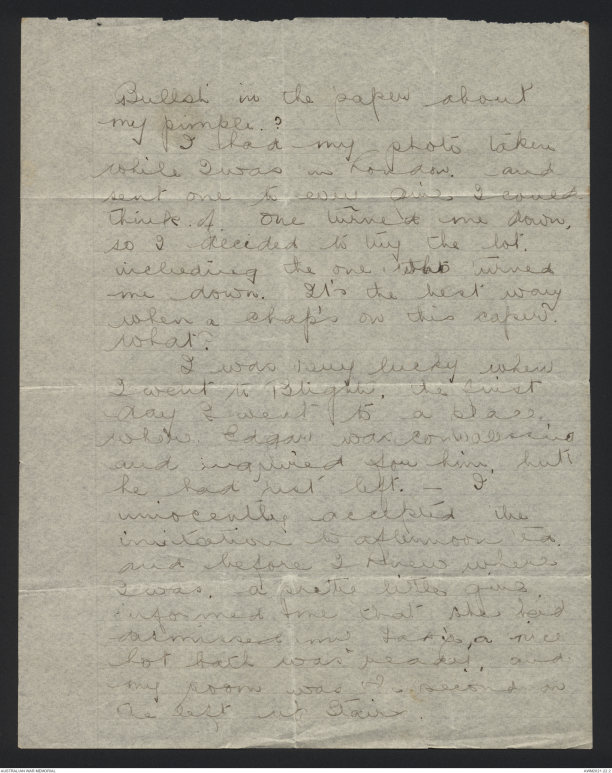 Bullsh in the paper about
my pimple.?
I had my photo taken
while I was in London. and
sent one to every girl I could
think of. One turned me down,
so I decided to try the lot.
including the one who turned
me down. It's the best way
when a chap's on this caper.
What?
I was very lucky when
I went to Blighty, the first
day I went to a place
where Edgar was convalescing
and inquired for him, but
he had just left. — I
innocently accepted the
invitation to afternoon tea.
and before I knew where
I was, a little girl
informed me that she had
a nice
hot bath was ready, and
my room was the second on
the left up Stairs.
AUSTRALIAN WAR MEMORIAL